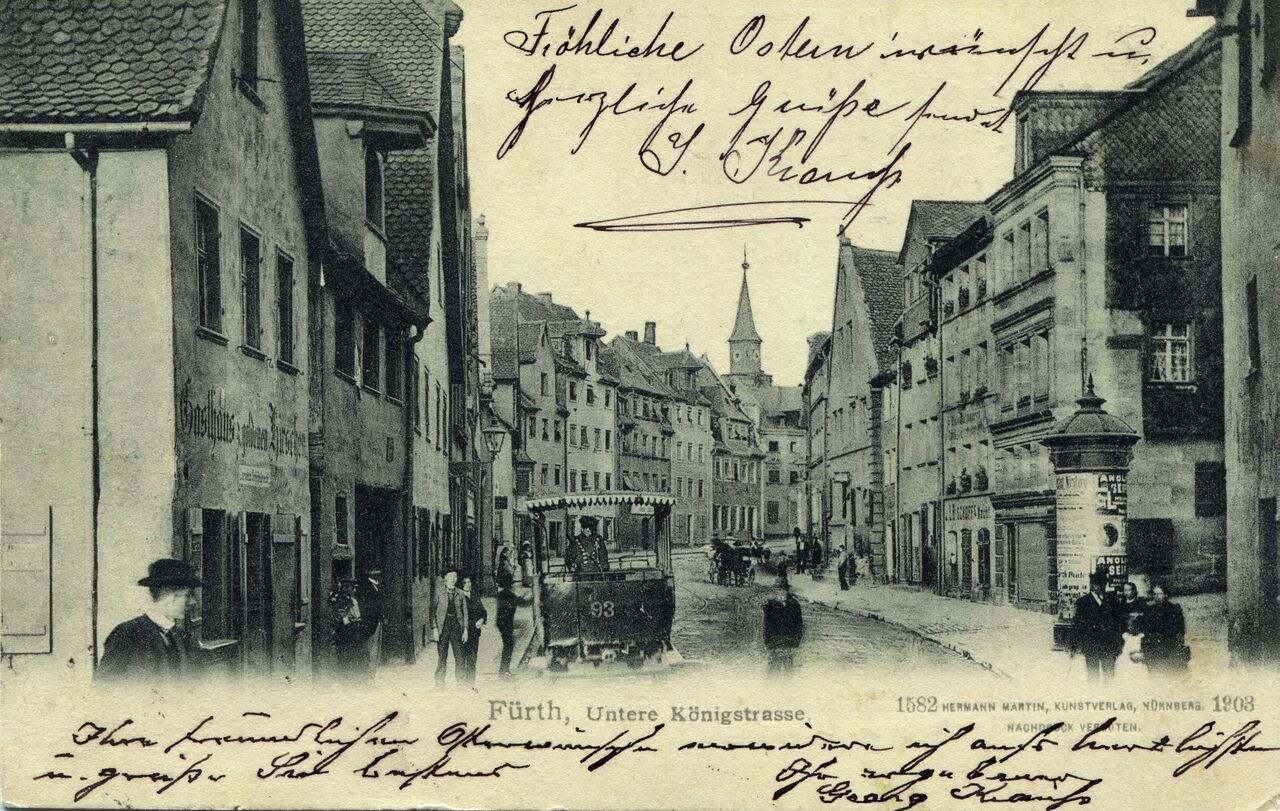 Fröhliche Ostern wünscht u.
herzliche Grüße sendet
J. Krauß
Gasthaus z. goldenen Hirschen
93
Fürth, Untere Königstrasse.
1582 HERMANN MARTIN, KUNSTVERLAG, NÜRNBERG. 1903
NACHDRUCK VERBOTEN.
Ihre freundlichen Osterwünsche erwidere ich aufs herzlichste
u. grüße Sie bestens
Ihr ergebener
Georg Krauß